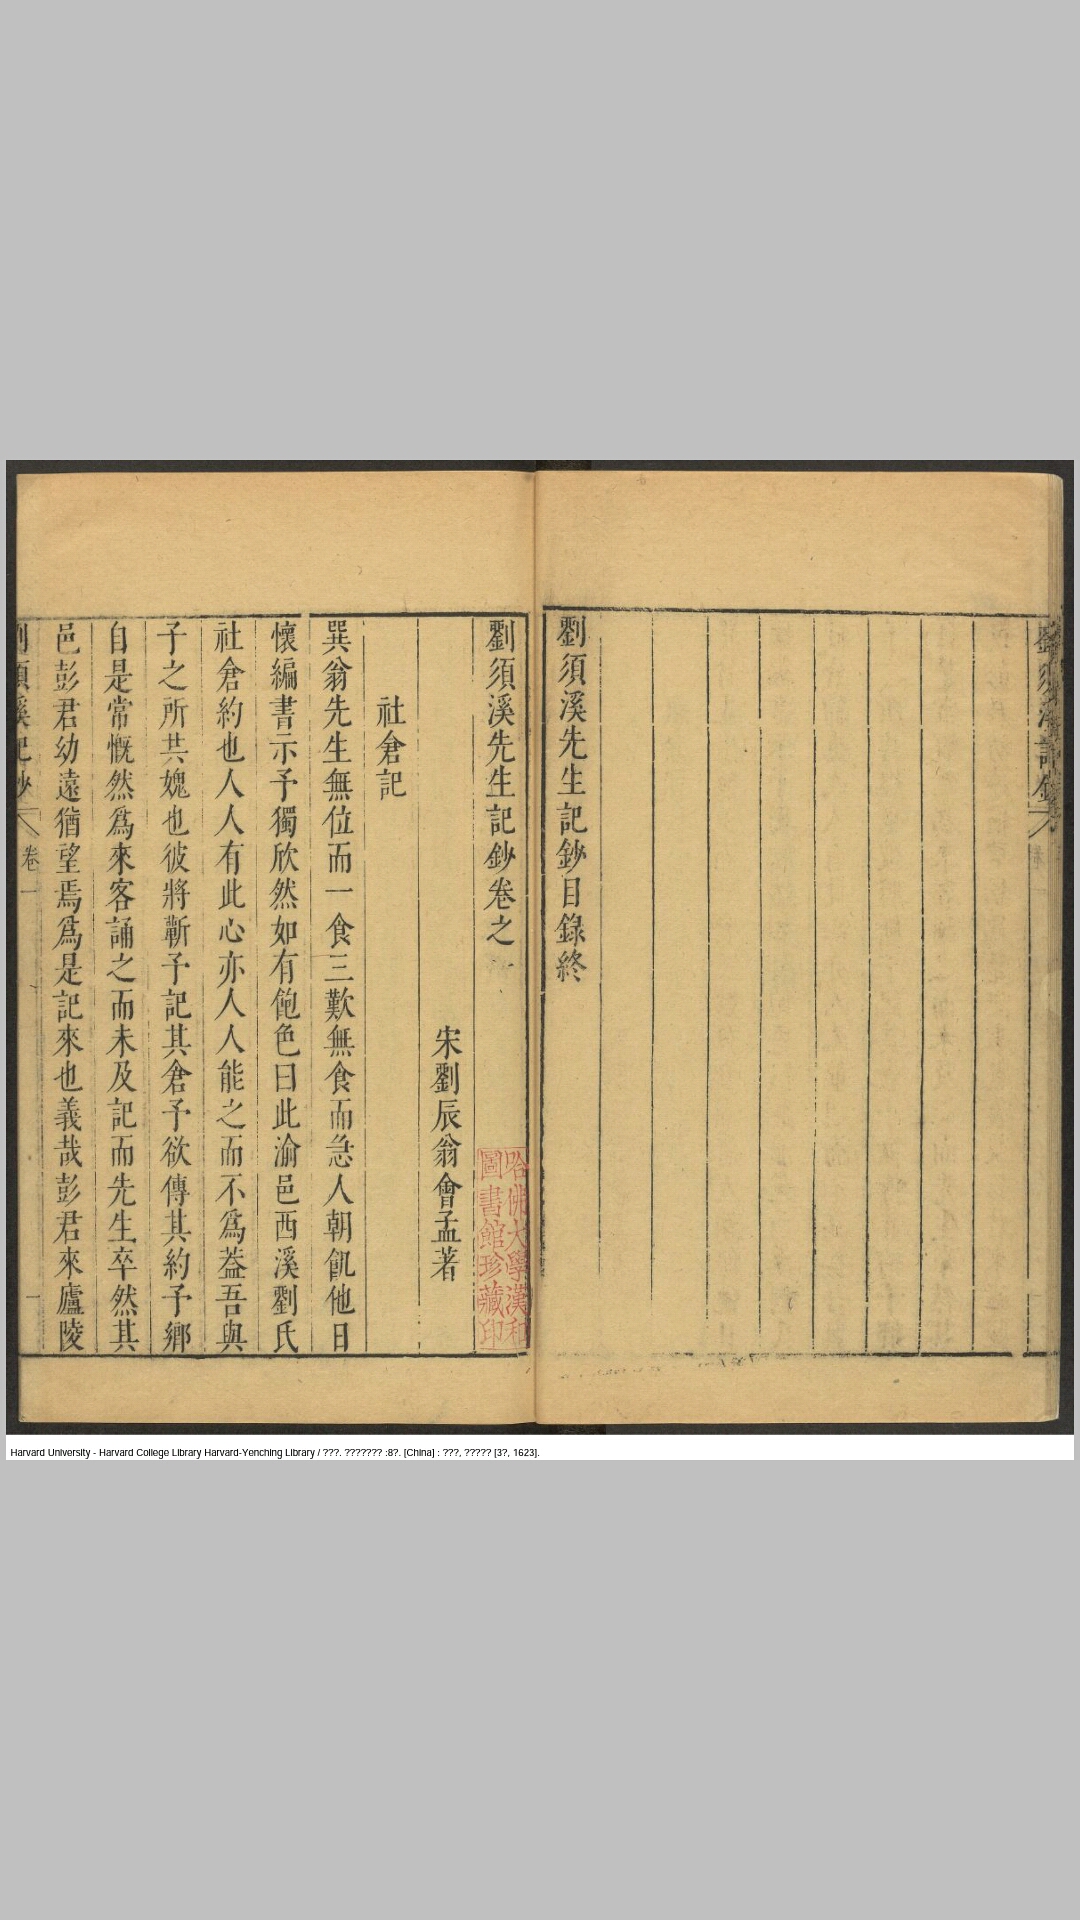 劉須溪先生記鈔目錄終
劉須溪先生記鈔卷之一
宋劉辰翁會孟著
社倉記
巽翁先生無位而一食三歎無食而急人朝飢他日
懷編書示予獨欣然如有飽色曰此渝邑西溪劉氏
社倉約也人人有此心亦人人能之而不爲葢吾與
子之所共媿也彼將蘄予記其倉予欲傳其約予鄉
自是常慨然爲來客誦之而未及記而先生卒然其
邑彭君幼遠猶望焉爲是記來也義哉彭君來廬陵
卷一
一
哈佛大學漢和
圖書館珍藏印
Harvard University - Harvard College Library Harvard-Yenching Library / ???. ??????? :8?. [China] : ???, ????? [3?, 1623].